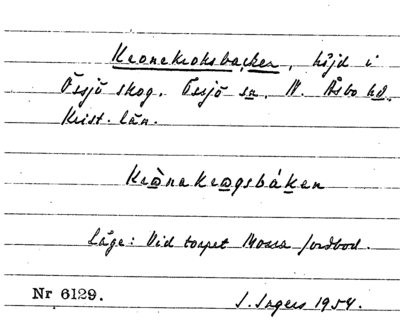 Kronekroksbacken, höjd i
Össjö skog. Össjö sn. N. Åsbo hd.
Krist. län.
Krònekrogsbáken
Läge: Vid torpet Mossa jordbod.
Nr 6129.
I. Ingers 1954.